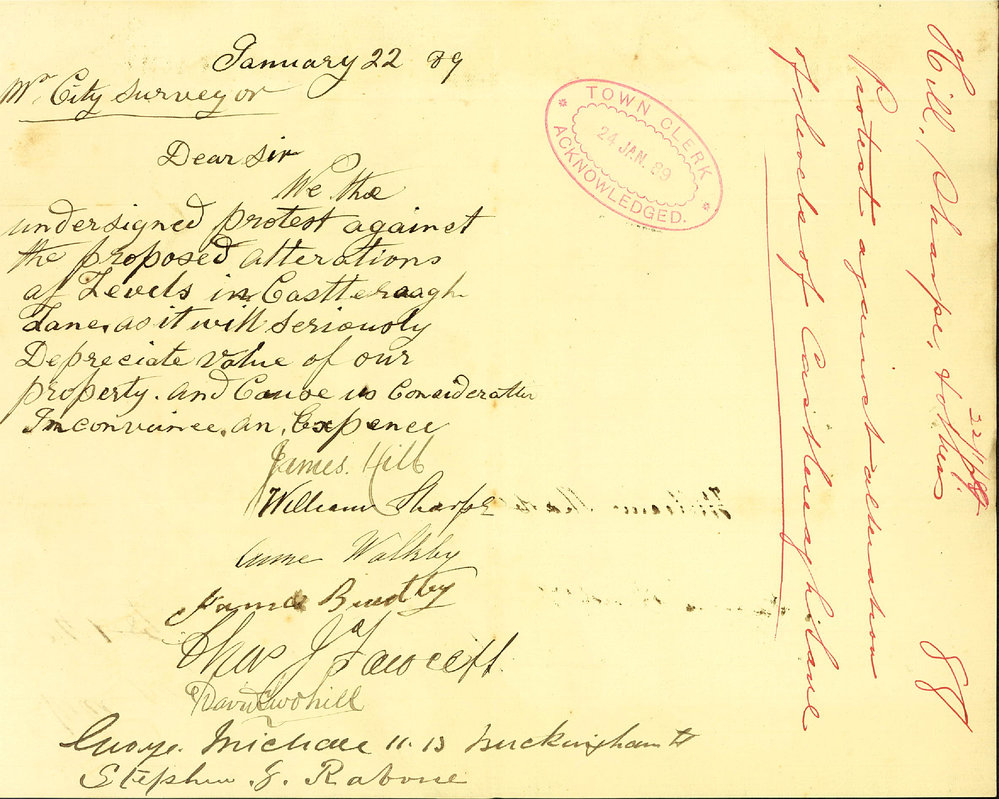 January 22 89
Mr City Surveyor
Dear Sir
We the
undersigned protest against
the proposed alterations
of Levels in Castlereagh
Lane, as it will seriously
Depreciate value of our
property. and Cause us Considerable
Inconvience, an, Expence
James. Hill
William Sharpe
Walkby
James
Thos J Fawcett.
David
George Michael 11. 13 Buckingham St
Stephen G. Rabone
TOWN CLERK
24 JAN. 89
ACKNOWLEDGED.
Hill, Sharpe, & others 88
22/1/89
Protest against alteration
of levels of Castlereagh Lane